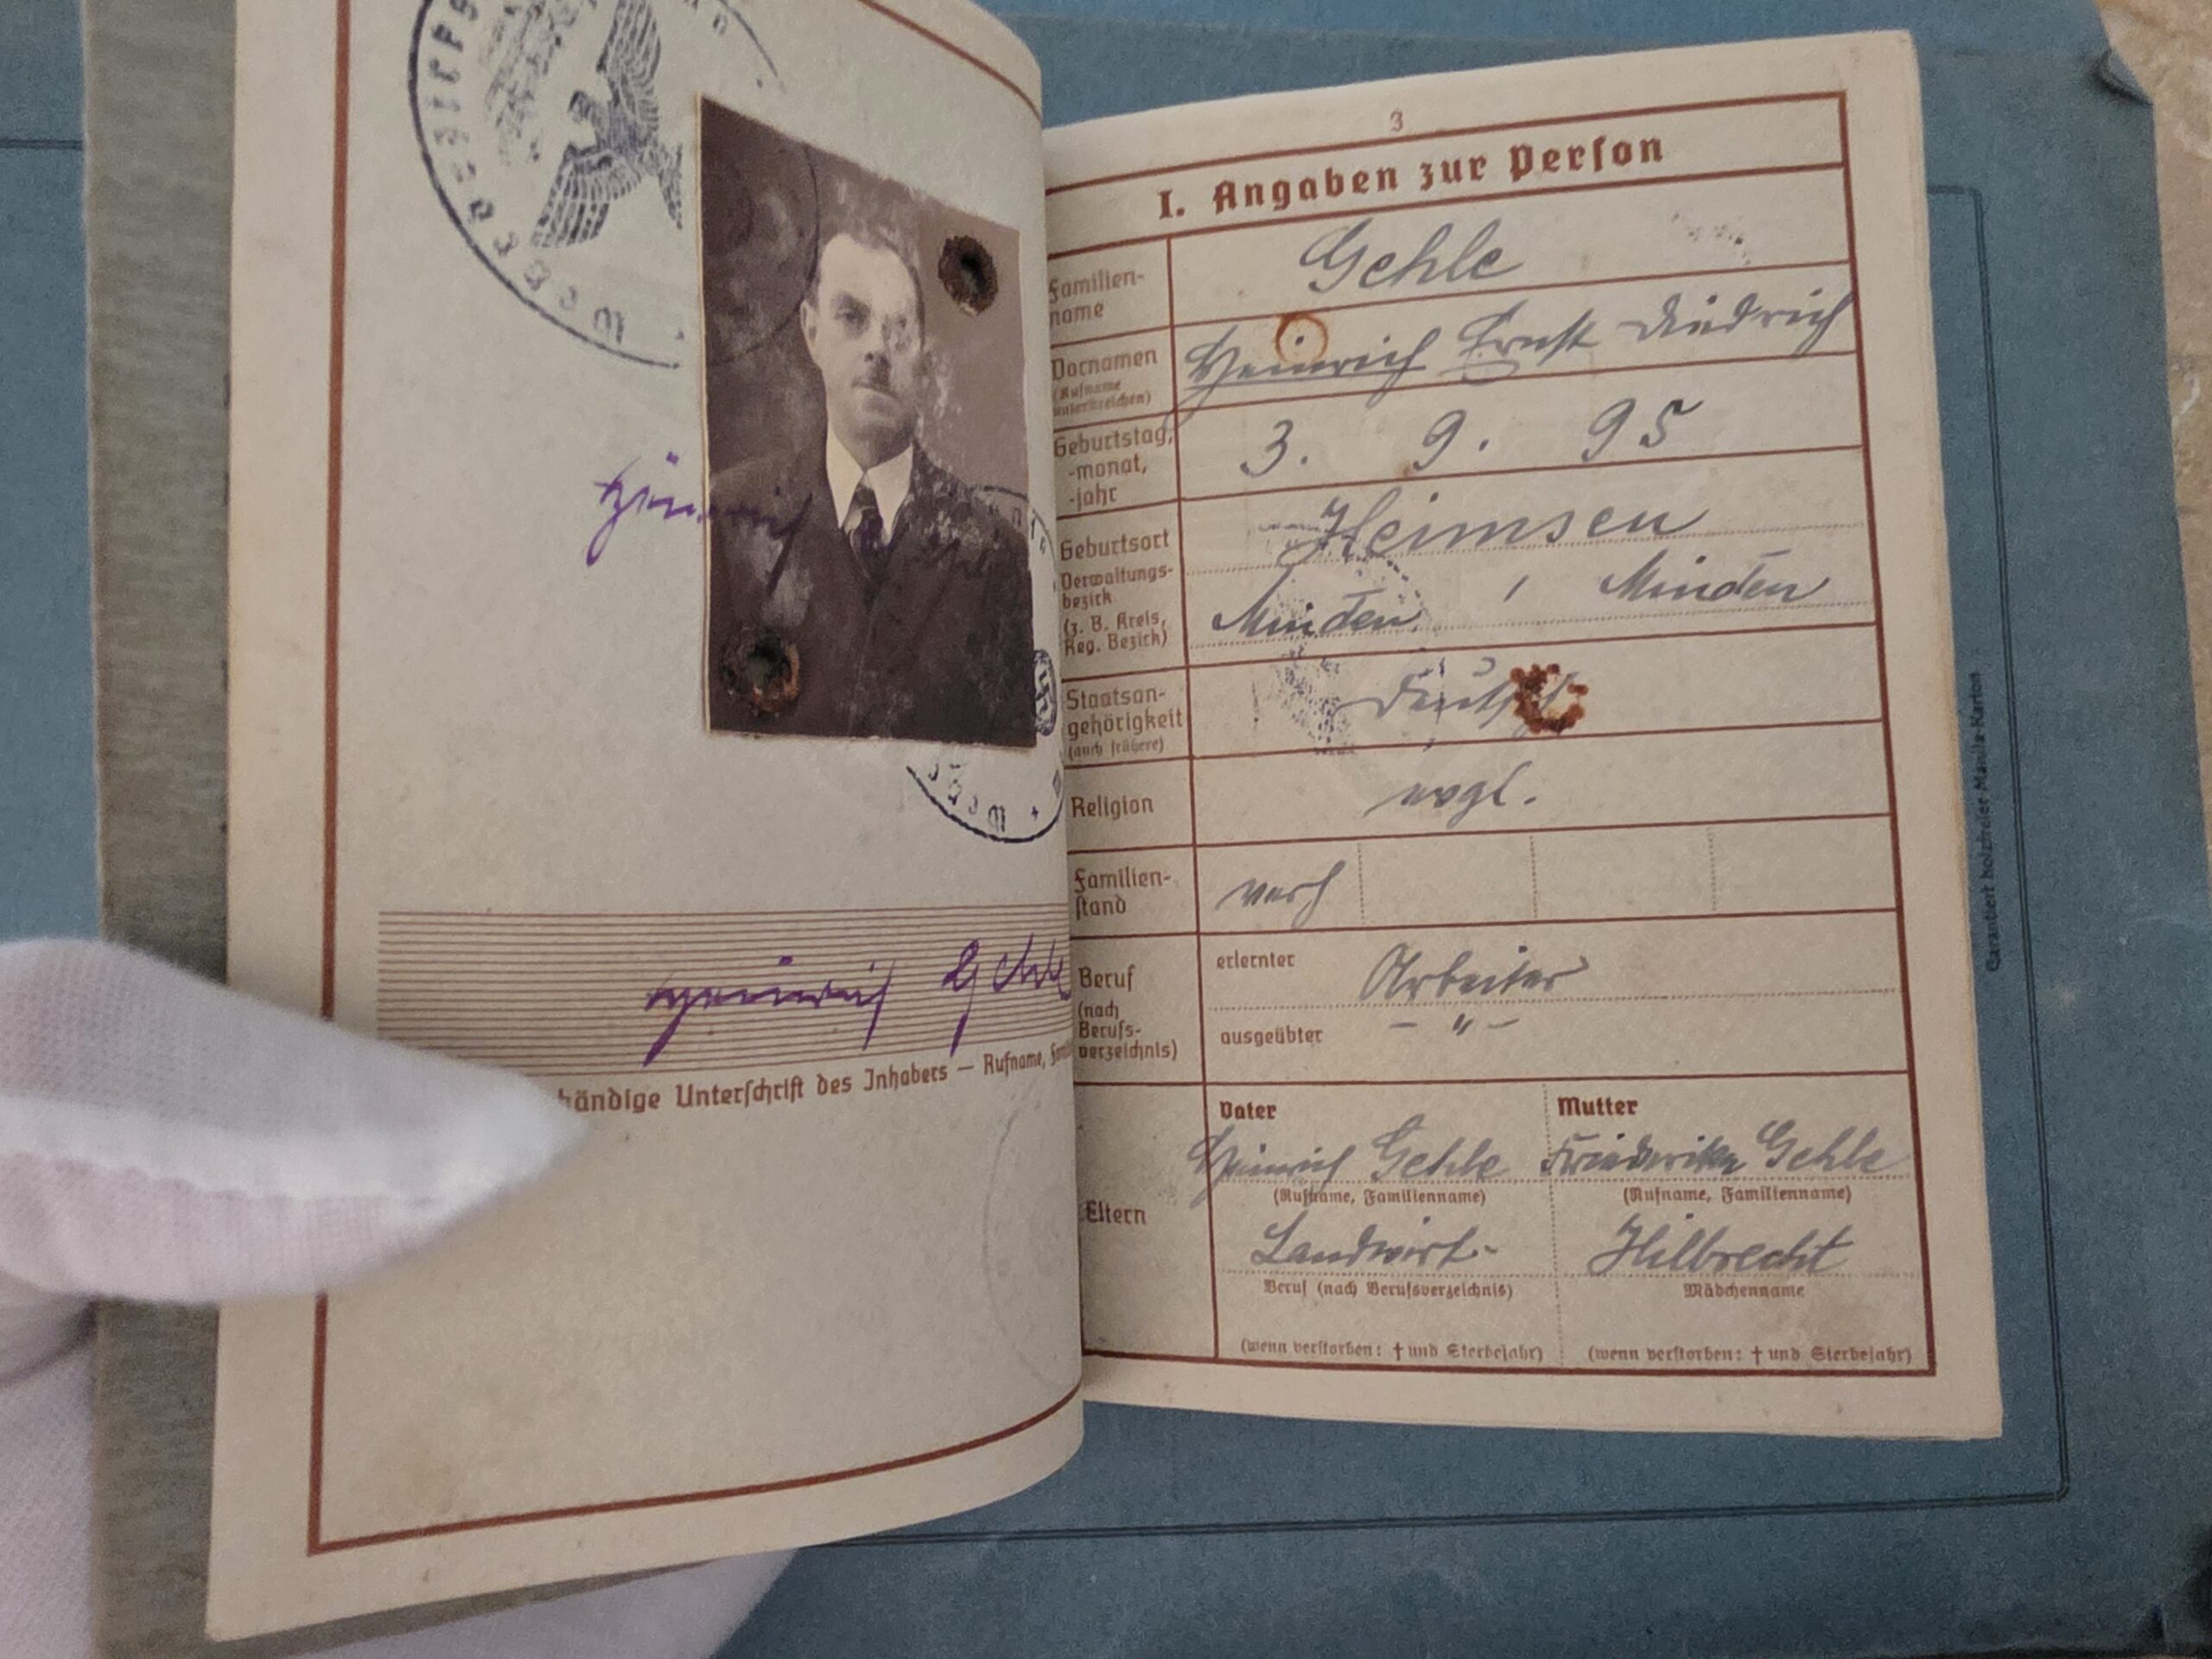 Heinrich Gehle
händige Unterschrift des Inhabers — Rufname,
3
I. Angaben zur Person
Familien-
name
Gehle
Vornamen
(Rufname
unterstreichen)
Heinrich Ernst Diedrich
Geburtstag,
-monat,
-jahr
3. 9. 95
Geburtsort
Heimsen
Verwaltungs-
bezirk
(z. B. Kreis,
Reg. Bezirk)
Minden, Minden
Staatsan-
gehörigkeit
(auch frühere)
Deutsch
Religion
evgl.
Familien-
stand
verh
Beruf
(nach
Berufs-
verzeichnis)
erlernter Arbeiter
ausgeübter — " —
Eltern
Vater
Heinrich Gehle
(Rufname, Familienname)
Landwirt
Beruf (nach Berufsverzeichnis)
(wenn verstorben: † und Sterbejahr)
Mutter
Friederike Gehle
(Rufname, Familienname)
Hilbrecht
Mädchenname
(wenn verstorben: † und Sterbejahr)
Garantiert holzfreier Manila-Karton